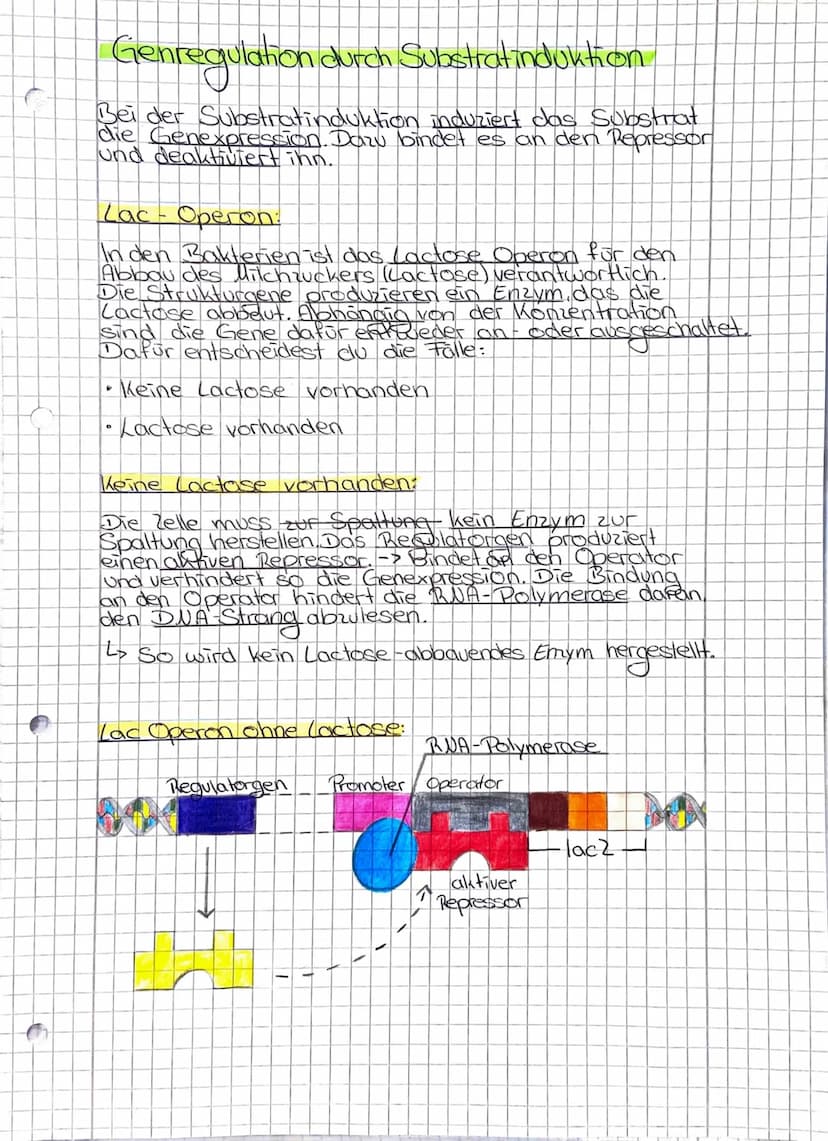 Genregulation durch Substratinduktion
Bei der Substratinduktion induziert das Substrat
die Genexpression. Dazu bindet es an den Repressor
und deaktiviert ihn.
Lac-Operon:
In den Bakterien ist das Lactose Operon für den
Abbau des Milchzuckers (Lactose) verantwortlich.
Die Strukturgene produzieren ein Enzym, das die
Lactose abbaut. Abhängig von der Konzentration
sind die Gene dafür entweder an- oder ausgeschaltet.
Dafür entscheidest du die Fälle:
• Keine Lactose vorhanden
• Lactose vorhanden
Keine Lactose vorhanden:
Die Zelle muss zur Spaltung kein Enzym zur
Spaltung herstellen. Das Regulatorgen produziert
einen aktiven Repressor. -> Bindet an den Operator
und verhindert so die Genexpression. Die Bindung
an den Operator hindert die RNA-Polymerase daran,
den DNA-Strang abzulesen.
↳ So wird kein Lactose-abbauendes Enzym hergestellt.
Lac Operon ohne Lactose:
RNA-Polymerase
Regulatorgen Promoter Operator
lacZ
aktiver
Repressor